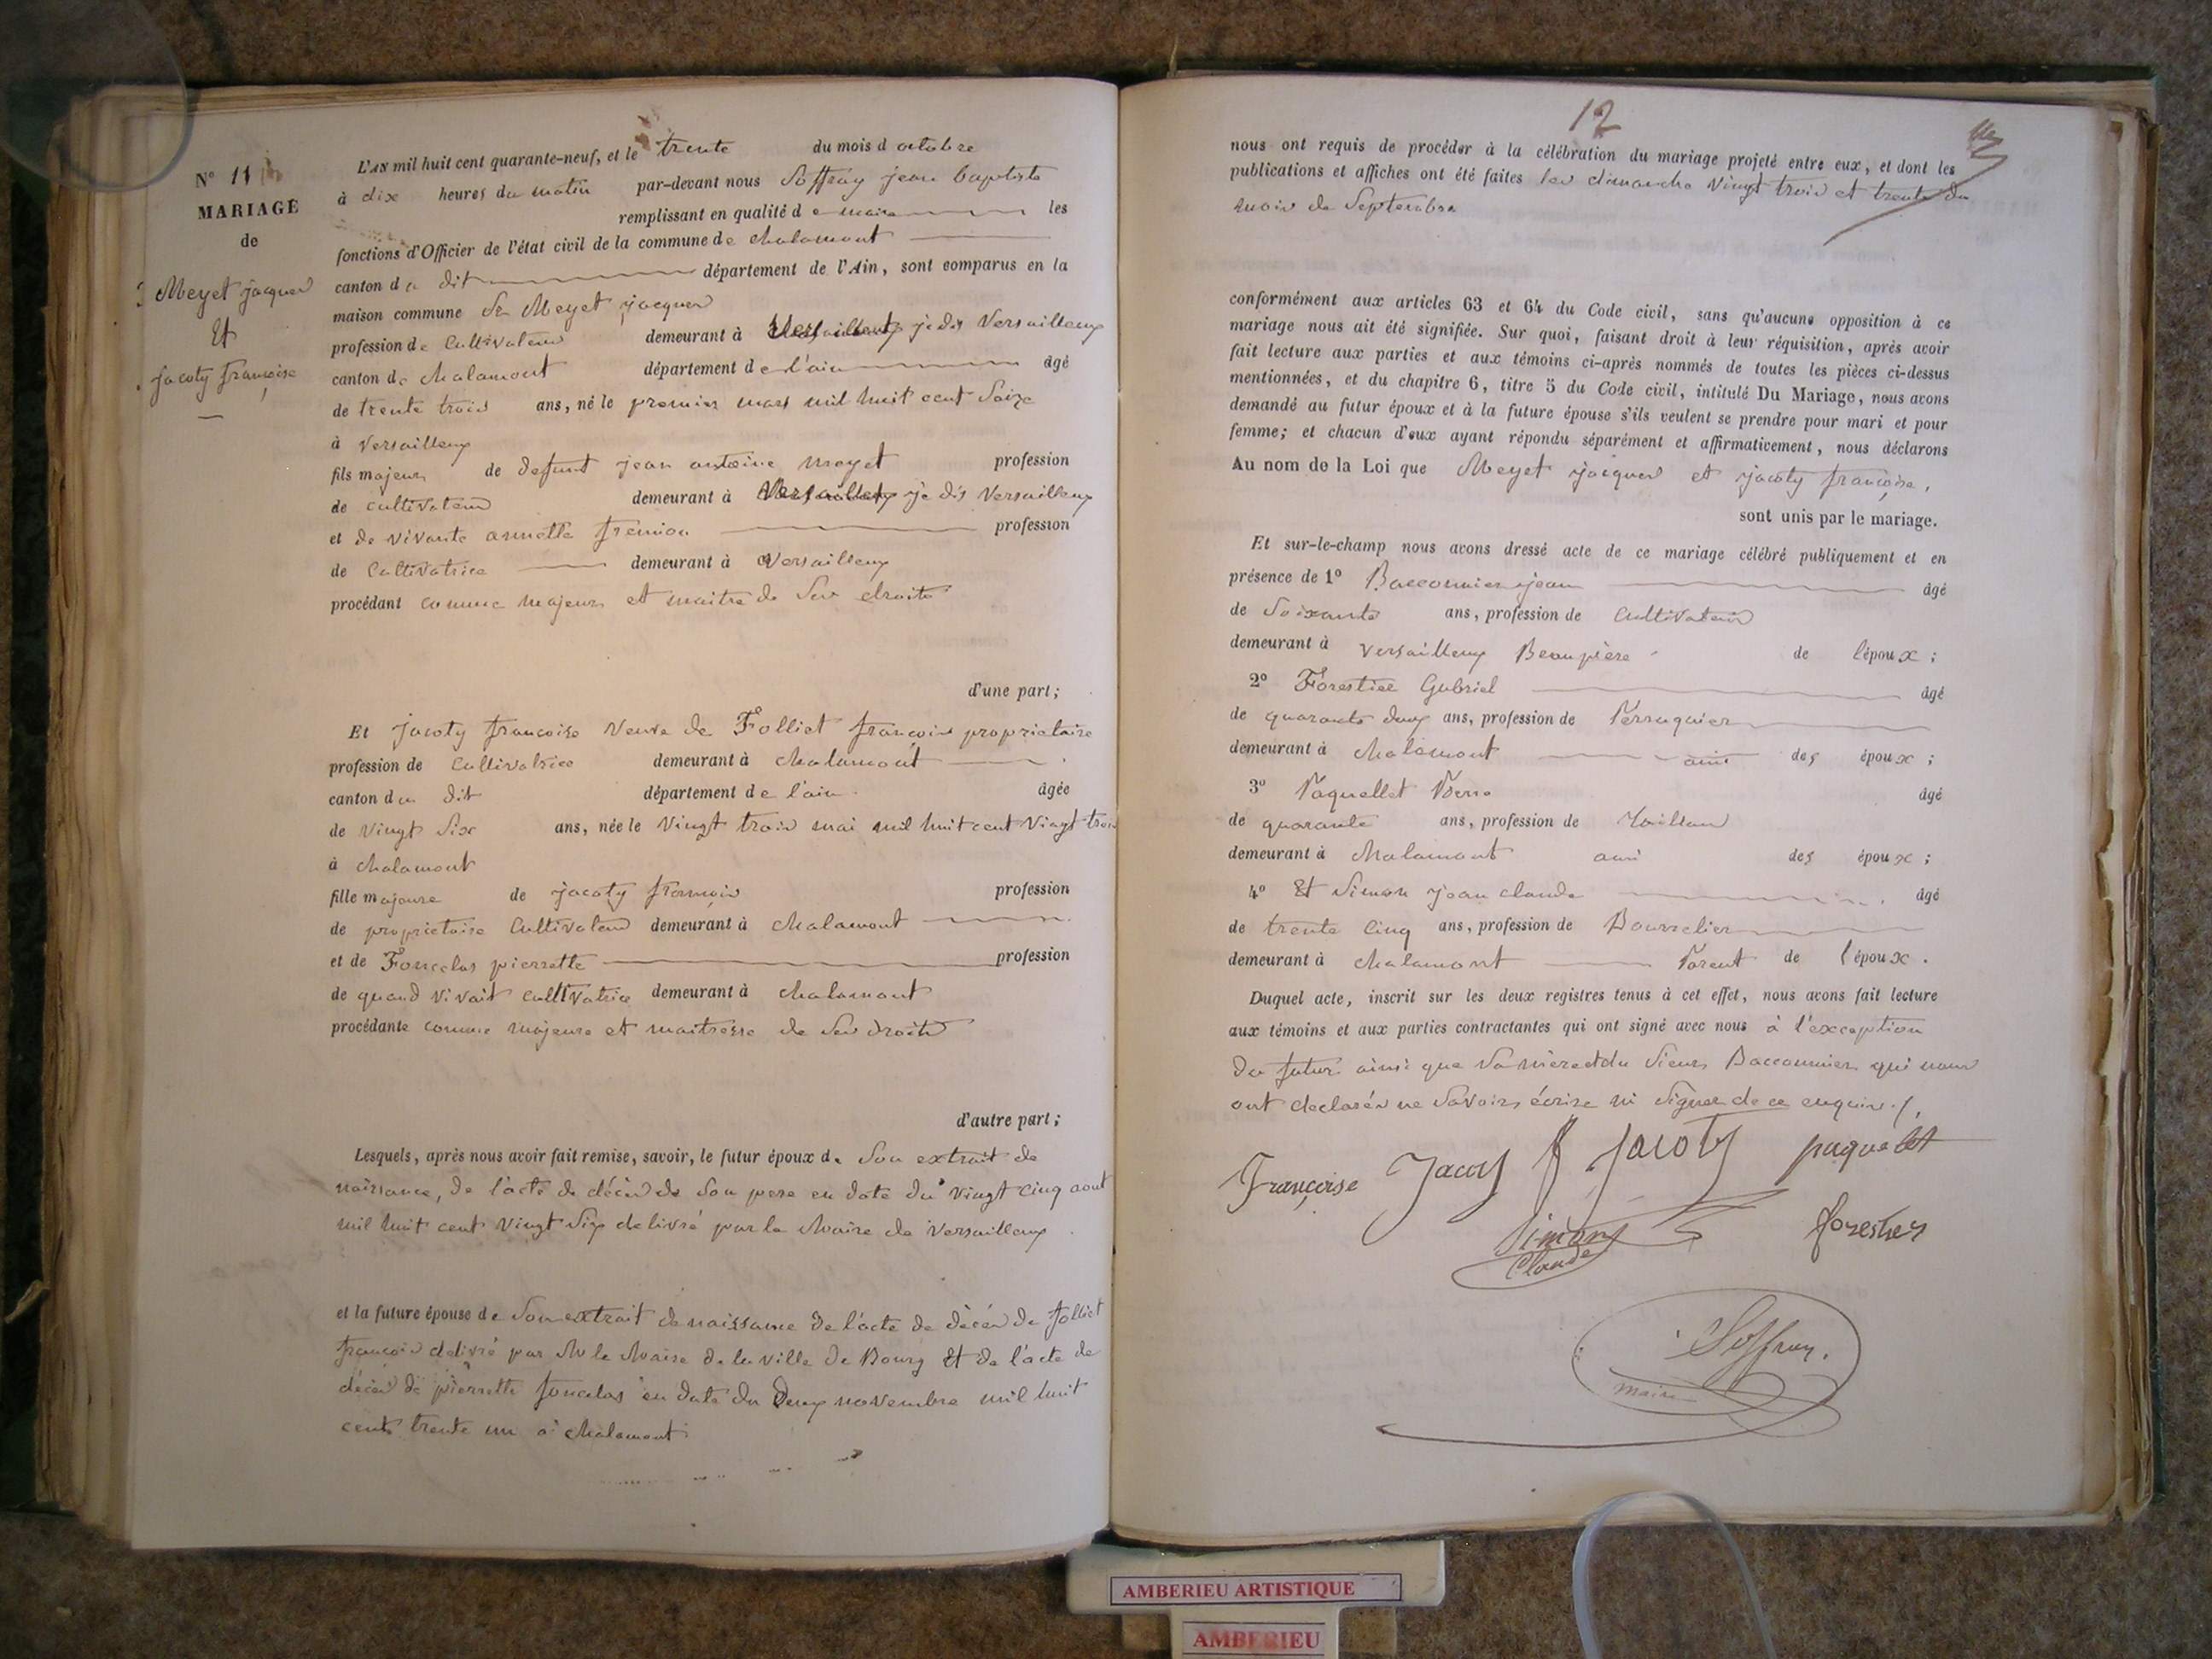 N° 11
MARIAGE
de
Meyet jacques
Et
jacoty françoise
L'AN mil huit cent quarante-neuf, et le trente du mois d octobre
à dix heures du matin par-devant nous Soffray jean baptiste
remplissant en qualité de maire les
fonctions d'Officier de l'état civil de la commune de chalamont
canton du dit département de l'Ain, sont comparus en la
maison commune Sr Meyet jacques
profession de Cultivateur demeurant à je dis Versailleux
canton de chalamont département de l'ain âgé
de trente trois ans, né le premier mars mil huit cent Seize
à Versailleux
fils majeur de defunt jean antoine meyet profession
de cultivateur demeurant à je dis Versailleux
et de vivante annette fremion profession
de Cultivatrice demeurant à Versailleux
procédant comme majeur et maitre de Ses droits
d'une part;
Et jacoty francoise Veuve de Folliet françois propriétaire
profession de Cultivatrice demeurant à chalamont
canton du dit département de l'ain âgée
de Vingt Six ans, née le Vingt trois mai mil huit cent Vingt trois
à chalamont
fille majeure de jacoty françois profession
de propriétaire Cultivateur demeurant à chalamont
et de Foncelas pierrette profession
de quand Vivait cultivatrice demeurant à chalamont
procédante comme majeure et maitresse de Ses droits
d'autre part;
Lesquels, après nous avoir fait remise, savoir, le futur époux de Son extrait de
naissance, de l'acte de décès de Son pere en date du Vingt cinq aout
mil huit cent Vingt Six delivré par le Maire de Versailleux
et la future épouse de Son extrait de naissance de l'acte de décès de folliet
françois delivré par Mr le Maire de la ville de Bourg Et de l'acte de
décès de pierrette foncelas en date du Deux novembre mil huit
cent trente un à chalamont
12
nous ont requis de procéder à la célébration du mariage projeté entre eux, et dont les
publications et affiches ont été faites les dimanche Vingt trois et trente du
mois de Septembre
conformément aux articles 63 et 64 du Code civil, sans qu'aucune opposition à ce
mariage nous ait été signifiée. Sur quoi, faisant droit à leur réquisition, après avoir
fait lecture aux parties et aux témoins ci-après nommés de toutes les pièces ci-dessus
mentionnées, et du chapitre 6, titre 5 du Code civil, intitulé Du Mariage, nous avons
demandé au futur époux et à la future épouse s'ils veulent se prendre pour mari et pour
femme; et chacun d'eux ayant répondu séparément et affirmativement, nous déclarons
Au nom de la Loi que Meyet jacques et jacoty françoise,
sont unis par le mariage.
Et sur-le-champ nous avons dressé acte de ce mariage célébré publiquement et en
présence de 1° Bacconnier jean âgé
de Soixante ans, profession de Cultivateur
demeurant à Versailleux Beaupière de l'époux;
2° Forestier Gabriel âgé
de quarante deux ans, profession de Perruquier
demeurant à chalamont ami des époux;
3° Paquellet Pierre âgé
de quarante ans, profession de Tailleur
demeurant à chalamont ami des époux;
4° Et Simon jean claude âgé
de trente Cinq ans, profession de Bourrelier
demeurant à chalamont Parent de l'époux.
Duquel acte, inscrit sur les deux registres tenus à cet effet, nous avons fait lecture
aux témoins et aux parties contractantes qui ont signé avec nous à l'exception
du futur ainsi que Sa mère et du Sieur Bacconnier qui nous
ont declarés ne Savoir écrire ni Signer de ce enquis./.
Françoise Jacoty F jacoty paquelet
Simon
Claude
forestier
Soffray.
maire
AMBERIEU ARTISTIQUE
AMBERIEU